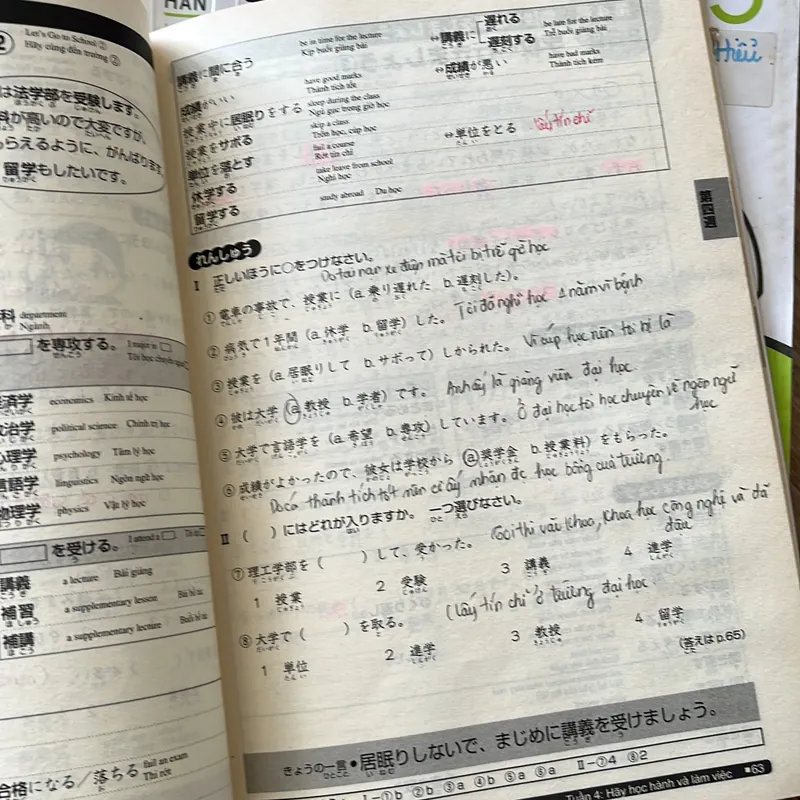 HÀN
Hiếu
② Let's Go to School ②
Hãy cùng đến trường ②
は法学部を受験します。
科が高いので大変ですが、
もらえるように、がんばります。
留学もしたいです。
科 department
Ngành
を専攻する。 I major in
経済学 economics Kinh tế học
政治学 political science Chính trị học
心理学 psychology Tâm lý học
言語学 linguistics Ngôn ngữ học
物理学 physics Vật lý học
を受ける。 I attend a
講義 a lecture Bài giảng
補習 a supplementary lesson
補講 a supplementary lecture
合格になる/落ちる fail an exam
Thi rớt
講義に間に合う be in time for the lecture
Kịp buổi giảng bài
↔講義に 遅れる
遅刻する
be late for the lecture
Trễ buổi giảng bài
成績がいい have good marks
Thành tích tốt
↔成績が悪い have bad marks
Thành tích kém
授業中に居眠りをする sleep during the class
Ngủ gục trong giờ học
授業をサボる skip a class
Trốn học, cúp học
単位を落とす fail a course
Rớt tín chỉ
↔単位をとる lấy tín chỉ
休学する take leave from school
Nghỉ học
留学する study abroad Du học
第四週
れんしゅう
Ⅰ 正しいほうに○をつけなさい。
Do tai nạn xe điện mà tôi bị trễ giờ học
① 電車の事故で、授業に(a. 乗り遅れた b. 遅刻した)。
② 病気で1年間(a. 休学 b. 留学)した。 Tôi đã nghỉ học 1 năm vì bệnh
③ 授業を(a. 居眠りして b. サボって)しかられた。 Vì cúp học nên tôi bị la
④ 彼は大学(a. 教授 b. 学者)です。 Anh ấy là giảng viên đại học.
⑤ 大学で言語学を(a. 希望 b. 専攻)しています。 Ở đại học tôi học chuyên về ngôn ngữ học
⑥ 成績がよかったので、彼女は学校から(a. 奨学金 b. 授業料)をもらった。
Do có thành tích tốt nên cô ấy nhận đc học bổng của trường.
Ⅱ ( )にはどれが入りますか。一つ選びなさい。
⑦ 理工学部を( )して、受かった。 Gọi thi vào khoa, khoa học công nghệ và đã đậu
1 授業 2 受験 3 講義 4 進学
⑧ 大学で( )を取る。 (Lấy tín chỉ ở trường đại học.
1 単位 2 進学 3 教授 4 留学
(答えは p.65)
きょうの一言 • 居眠りしないで、まじめに講義を受けましょう。
Ⅰ-①b ②b ③a ④b ⑤a ⑥a Ⅱ-⑦4 ⑧2
Tuần 4: Hãy học hành và làm việc ■63